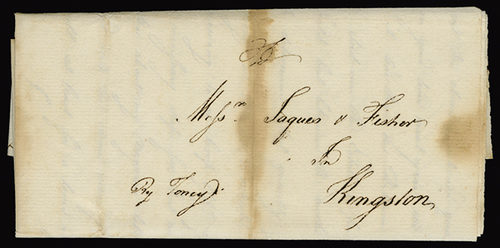 To
Messrs. Jaques & Fisher
In
Kingston
Py Toney